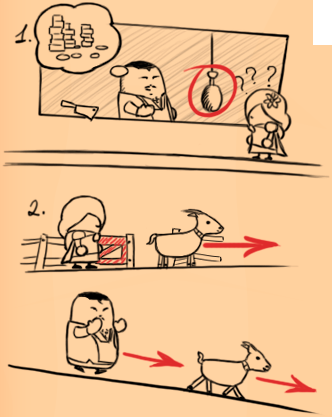 1.
? ? ?
2.